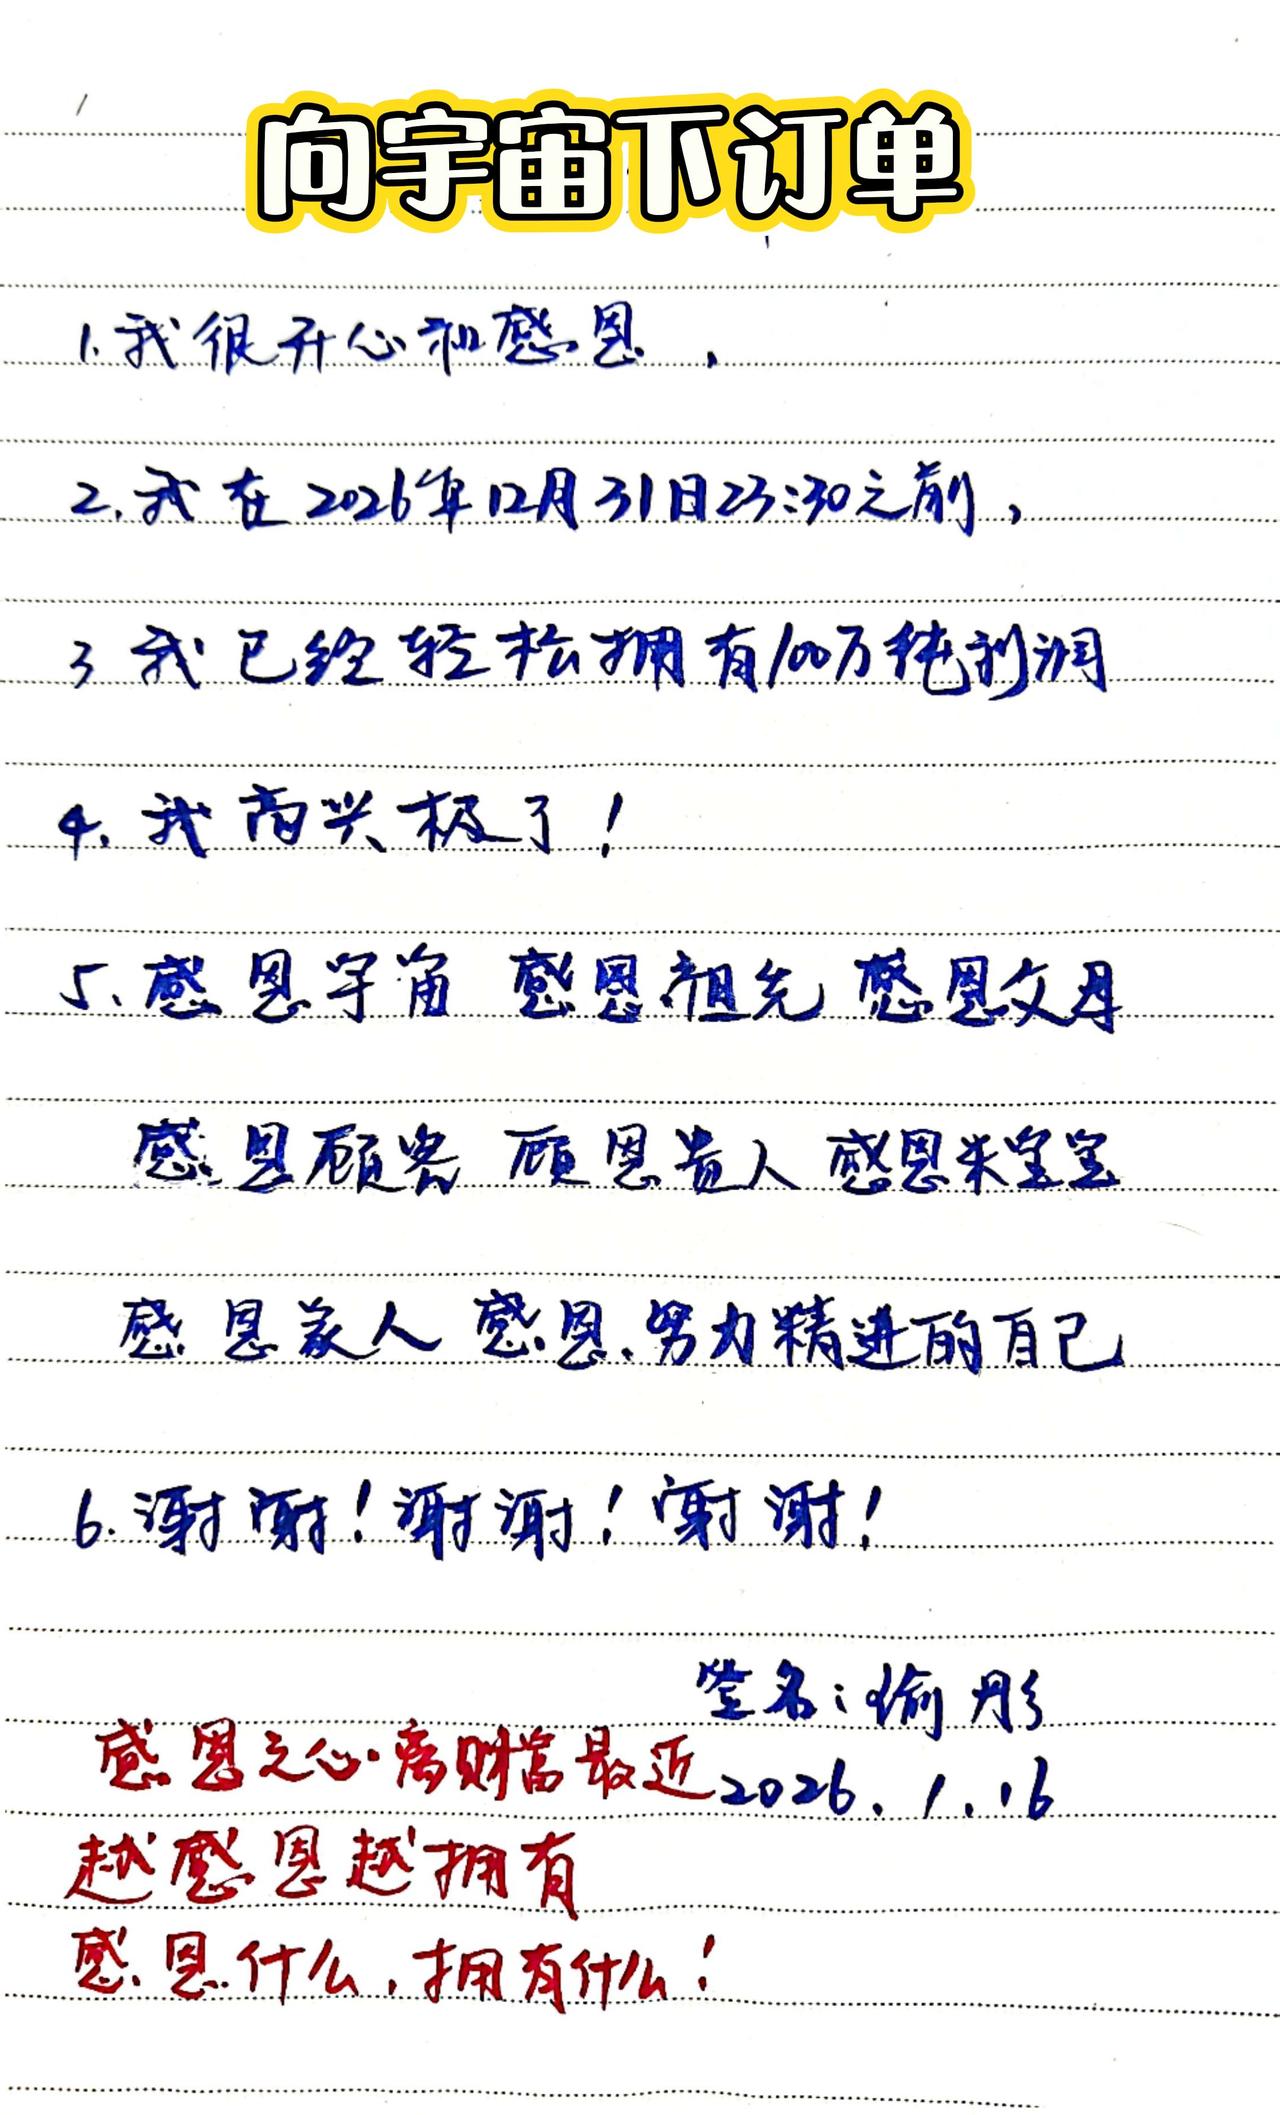 向宇宙下订单
1.我很开心和感恩,
2.我在2026年12月31日23:30之前,
3我已经轻松拥有100万纯利润
4.我高兴极了!
5.感恩宇宙 感恩祖先 感恩父母
感恩顾客 顾恩贵人 感恩朱宝宝
感恩家人 感恩.努力精进的自己
6.谢谢!谢谢!谢谢!
签名:喻彤
感恩之心·离财富最近
2026.1.16
越感恩越拥有
感恩什么,拥有什么!